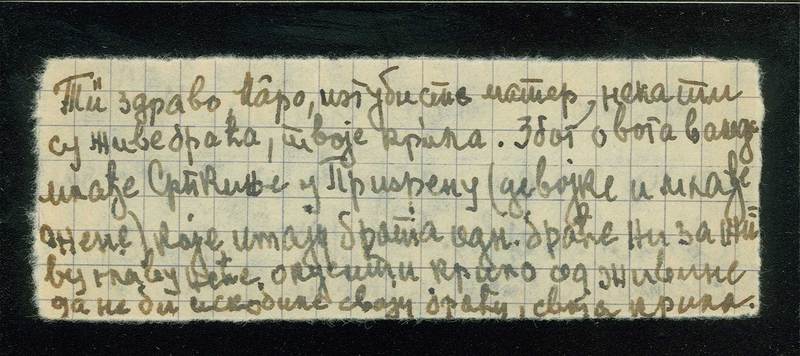 Ти̏ здраво, Ма̂ро, изгубисте матер, нека ти
су живе браћа, твоје крила. Због овога ванд.
млађе Српкиње у Призрену (девојке и млађе
жене) које имају брата одн. браће ни за жӣ
ву главу неће окусити крило од живине
да не би искобиле своју браћу, своја крила.